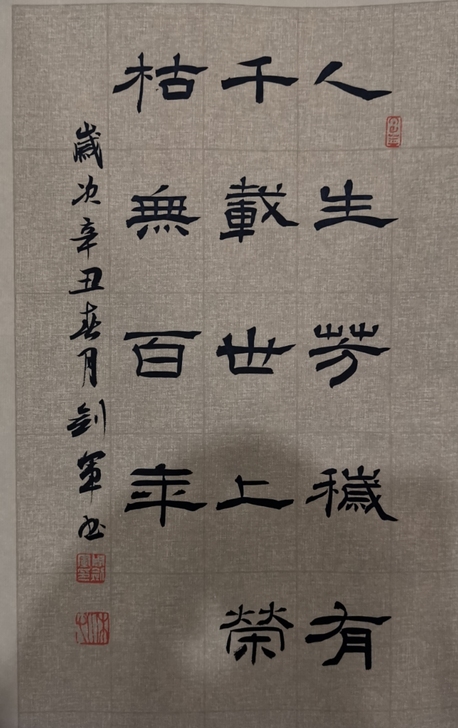 人生芳穢有
千載世上榮
枯無百年
歲次辛丑春月劍軍书